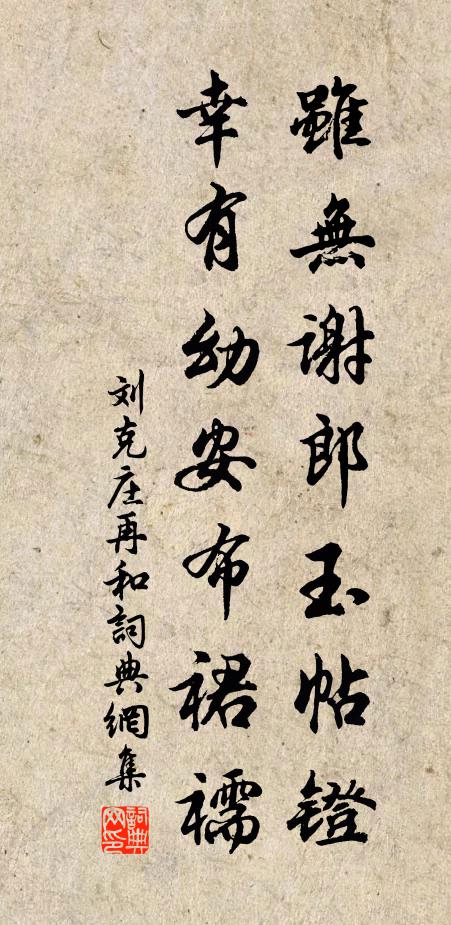 雖無謝郎玉帖鐙
幸有幼安布裙襦
刘克庄再和詞典網集
詞典网印